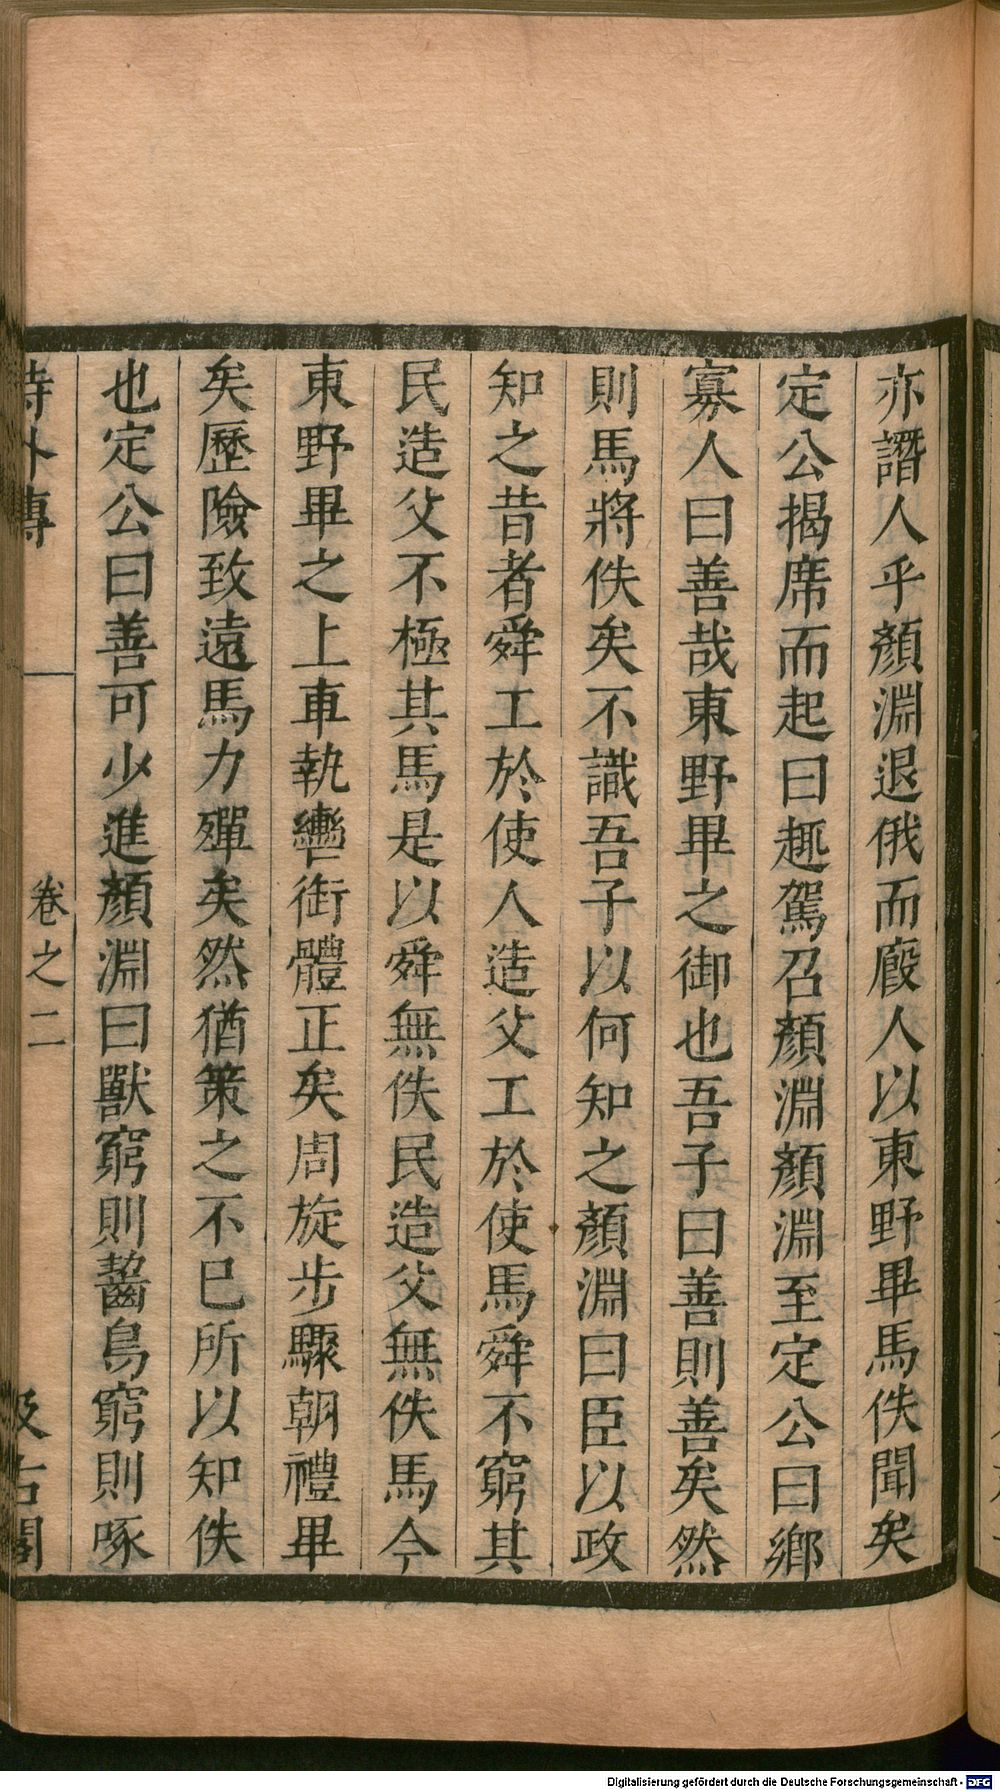 亦譖人乎顏淵退俄而廄人以東野畢馬佚聞矣
定公揭席而起曰趣駕召顏淵顏淵至定公曰鄉
寡人曰善哉東野畢之御也吾子曰善則善矣然
則馬將佚矣不識吾子以何知之顏淵曰臣以政
知之昔者舜工於使人造父工於使馬舜不窮其
民造父不極其馬是以舜無佚民造父無佚馬今
東野畢之上車執轡銜體正矣周旋步驟朝禮畢
矣歷險致遠馬力殫矣然猶策之不已所以知佚
也定公曰善可少進顏淵曰獸窮則齧鳥窮則啄
詩外傳
卷之二
汲古閣
Digitalisierung gefördert durch die Deutsche Forschungsgemeinschaft - DFG